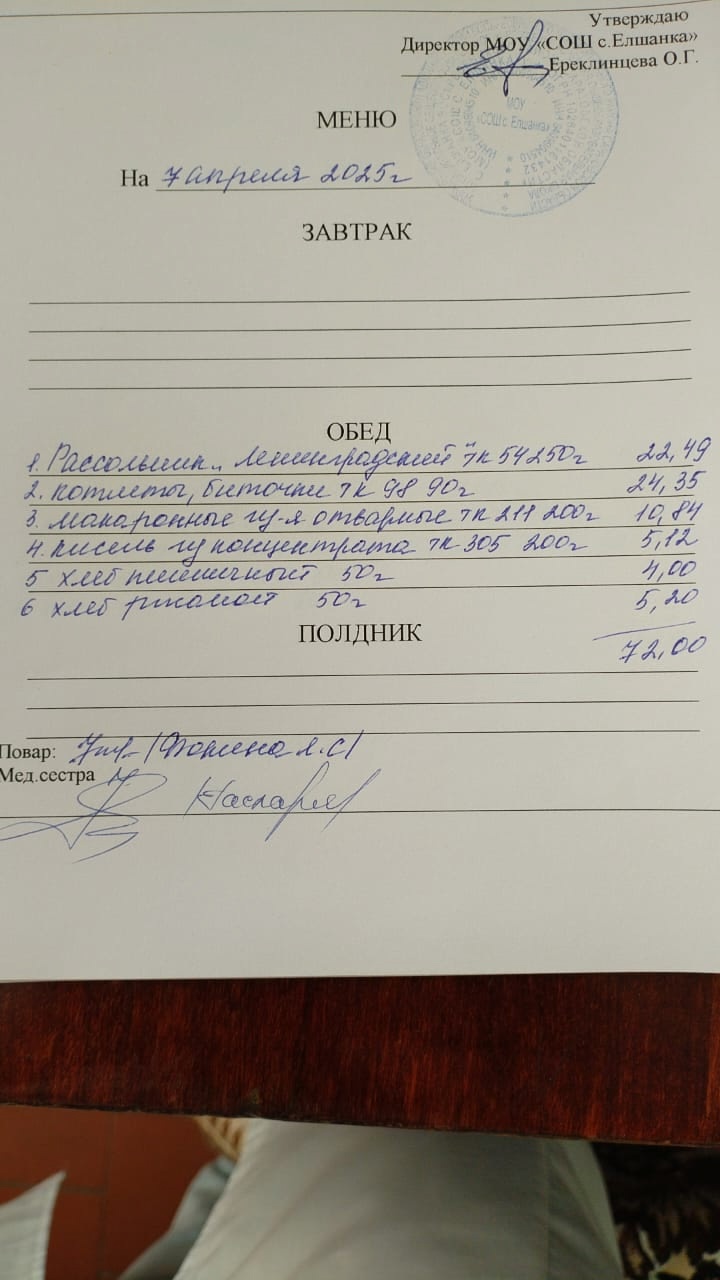 Утверждаю
Директор МОУ «СОШ с.Елшанка»
Ереклинцева О.Г.
МОУ
«СОШ с. Елшанка»
МЕНЮ
На 7 апреля 2025г
ЗАВТРАК
ОБЕД
1. Рассольник „Ленинградский" тк 54 250г 22,49
2. котлеты, биточки тк 98 90г 24,35
3. макаронные из-я отварные тк 211 200г 10,84
4. кисель из концентрата тк 305 200г 5,12
5 хлеб пшеничный 50г 4,00
6 хлеб ржаной 50г 5,20
ПОЛДНИК
72,00
Повар:
Мед.сестра